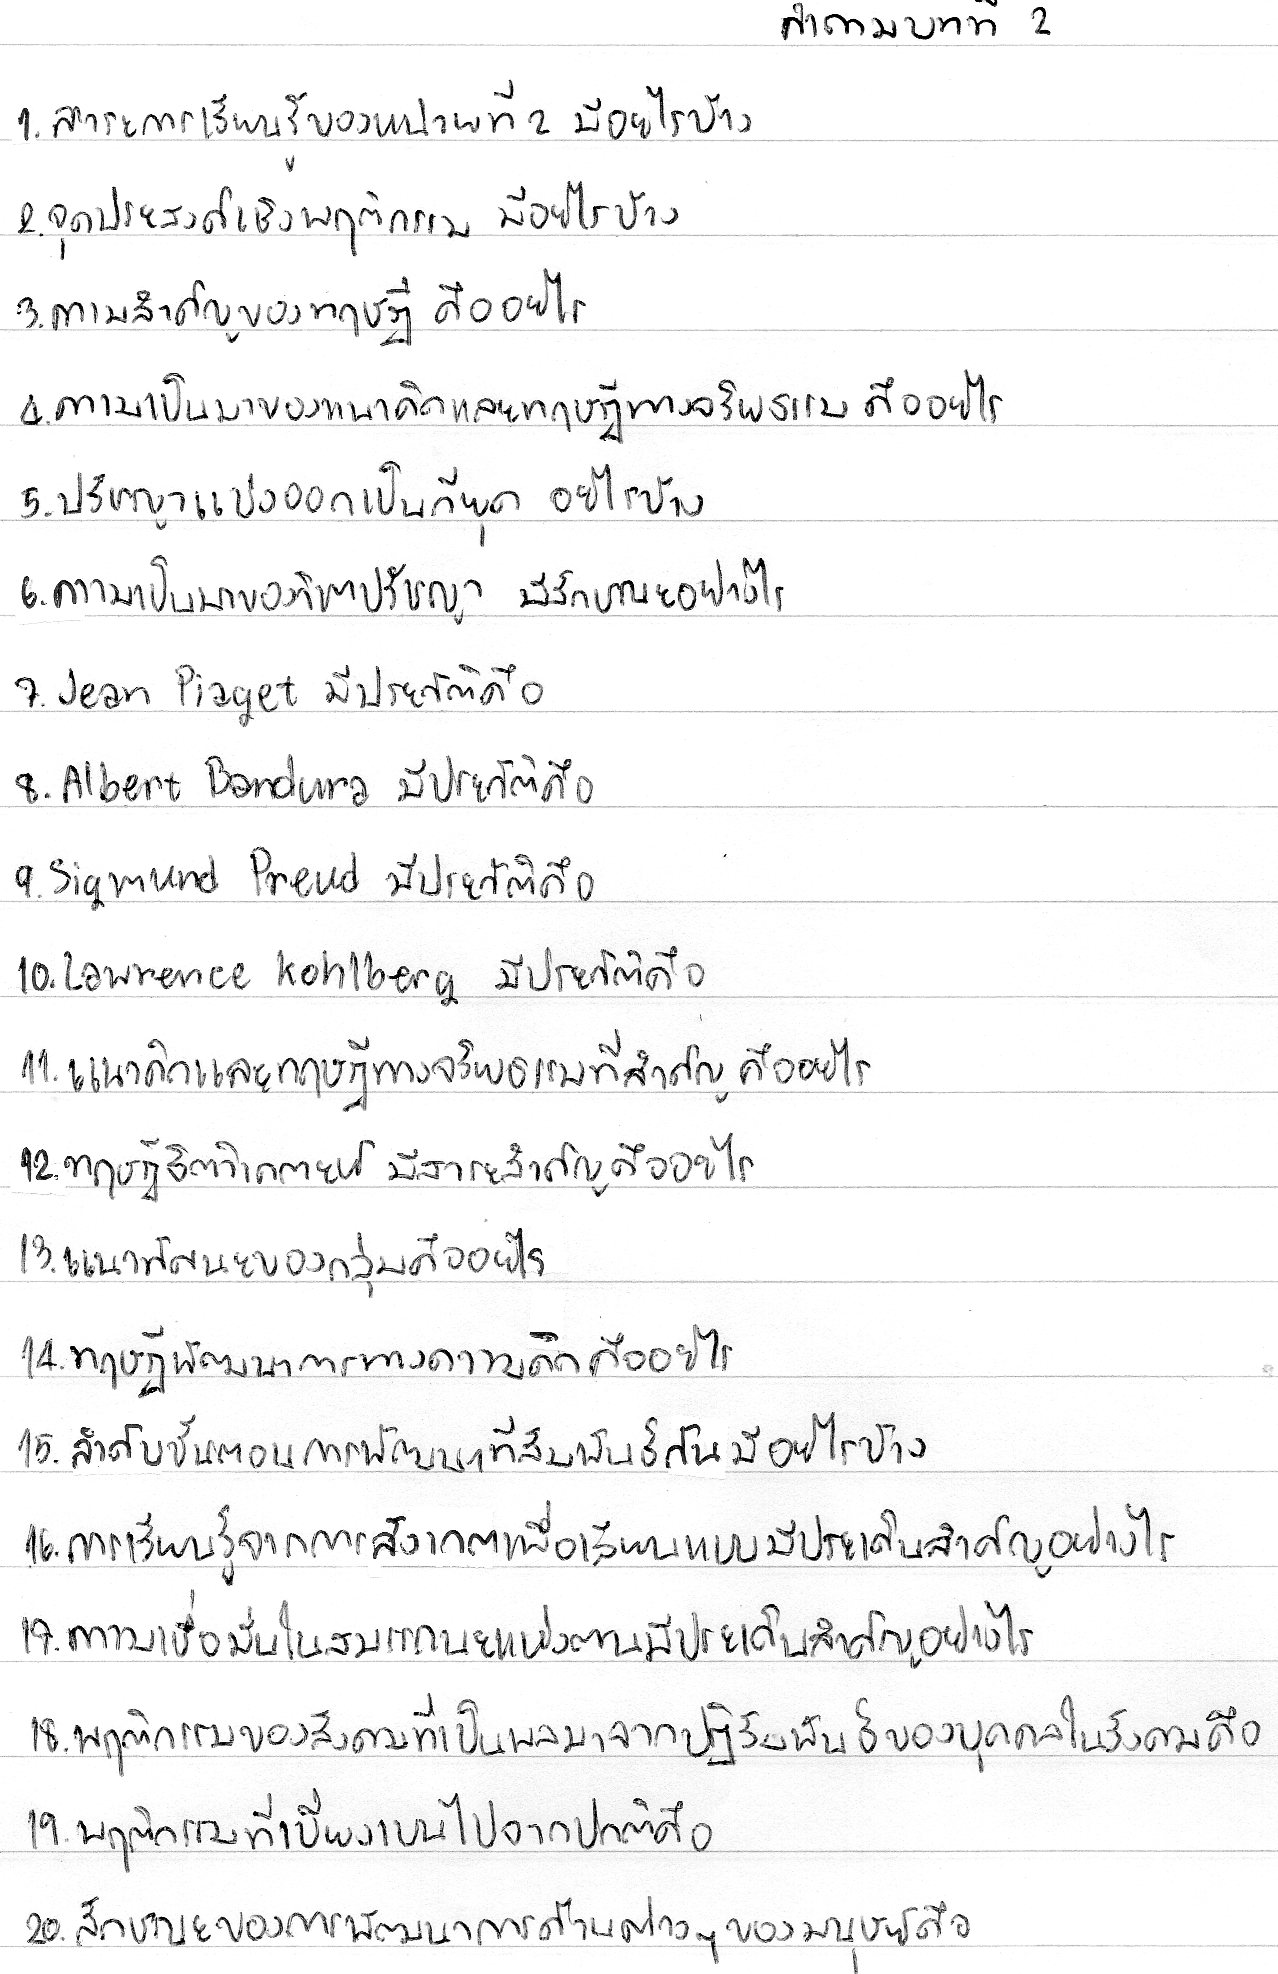 คำถามบทที่ 2
1. สาระการเรียนรู้ของหน่วยที่ 2 มีอะไรบ้าง
2. จุดประสงค์เชิงพฤติกรรม มีอะไรบ้าง
3. ความสำคัญของทฤษฎี คืออะไร
4. ความเป็นมาของแนวคิดและทฤษฎีทางจริยธรรม คืออะไร
5. ปรัชญาแบ่งออกเป็นกี่ยุค อะไรบ้าง
6. ความเป็นมาของจิตปรัชญา มีลักษณะอย่างไร
7. Jean Piaget มีประวัติคือ
8. Albert Bandura มีประวัติคือ
9. Sigmund Freud มีประวัติคือ
10. Lawrence kohlberg มีประวัติคือ
11. แนวคิดและทฤษฎีทางจริยธรรมที่สำคัญ คืออะไร
12. ทฤษฎีจิตวิเคราะห์ มีสาระสำคัญคืออะไร
13. แนวทัศนะของกลุ่มคืออะไร
14. ทฤษฎีพัฒนาการทางความคิดคืออะไร
15. ลำดับขั้นตอนการพัฒนาที่สัมพันธ์กันมีอะไรบ้าง
16. การเรียนรู้จากการสังเกตเพื่อเลียนแบบมีประเด็นสำคัญอย่างไร
17. ความเชื่อมั่นในสมรรถนะแห่งตนมีประเด็นสำคัญอย่างไร
18. พฤติกรรมของสังคมที่เป็นผลมาจากปฏิสัมพันธ์ของบุคคลในสังคมคือ
19. พฤติกรรมที่เบี่ยงเบนไปจากปกติคือ
20. ลักษณะของการพัฒนาการด้านต่างๆ ของมนุษย์คือ